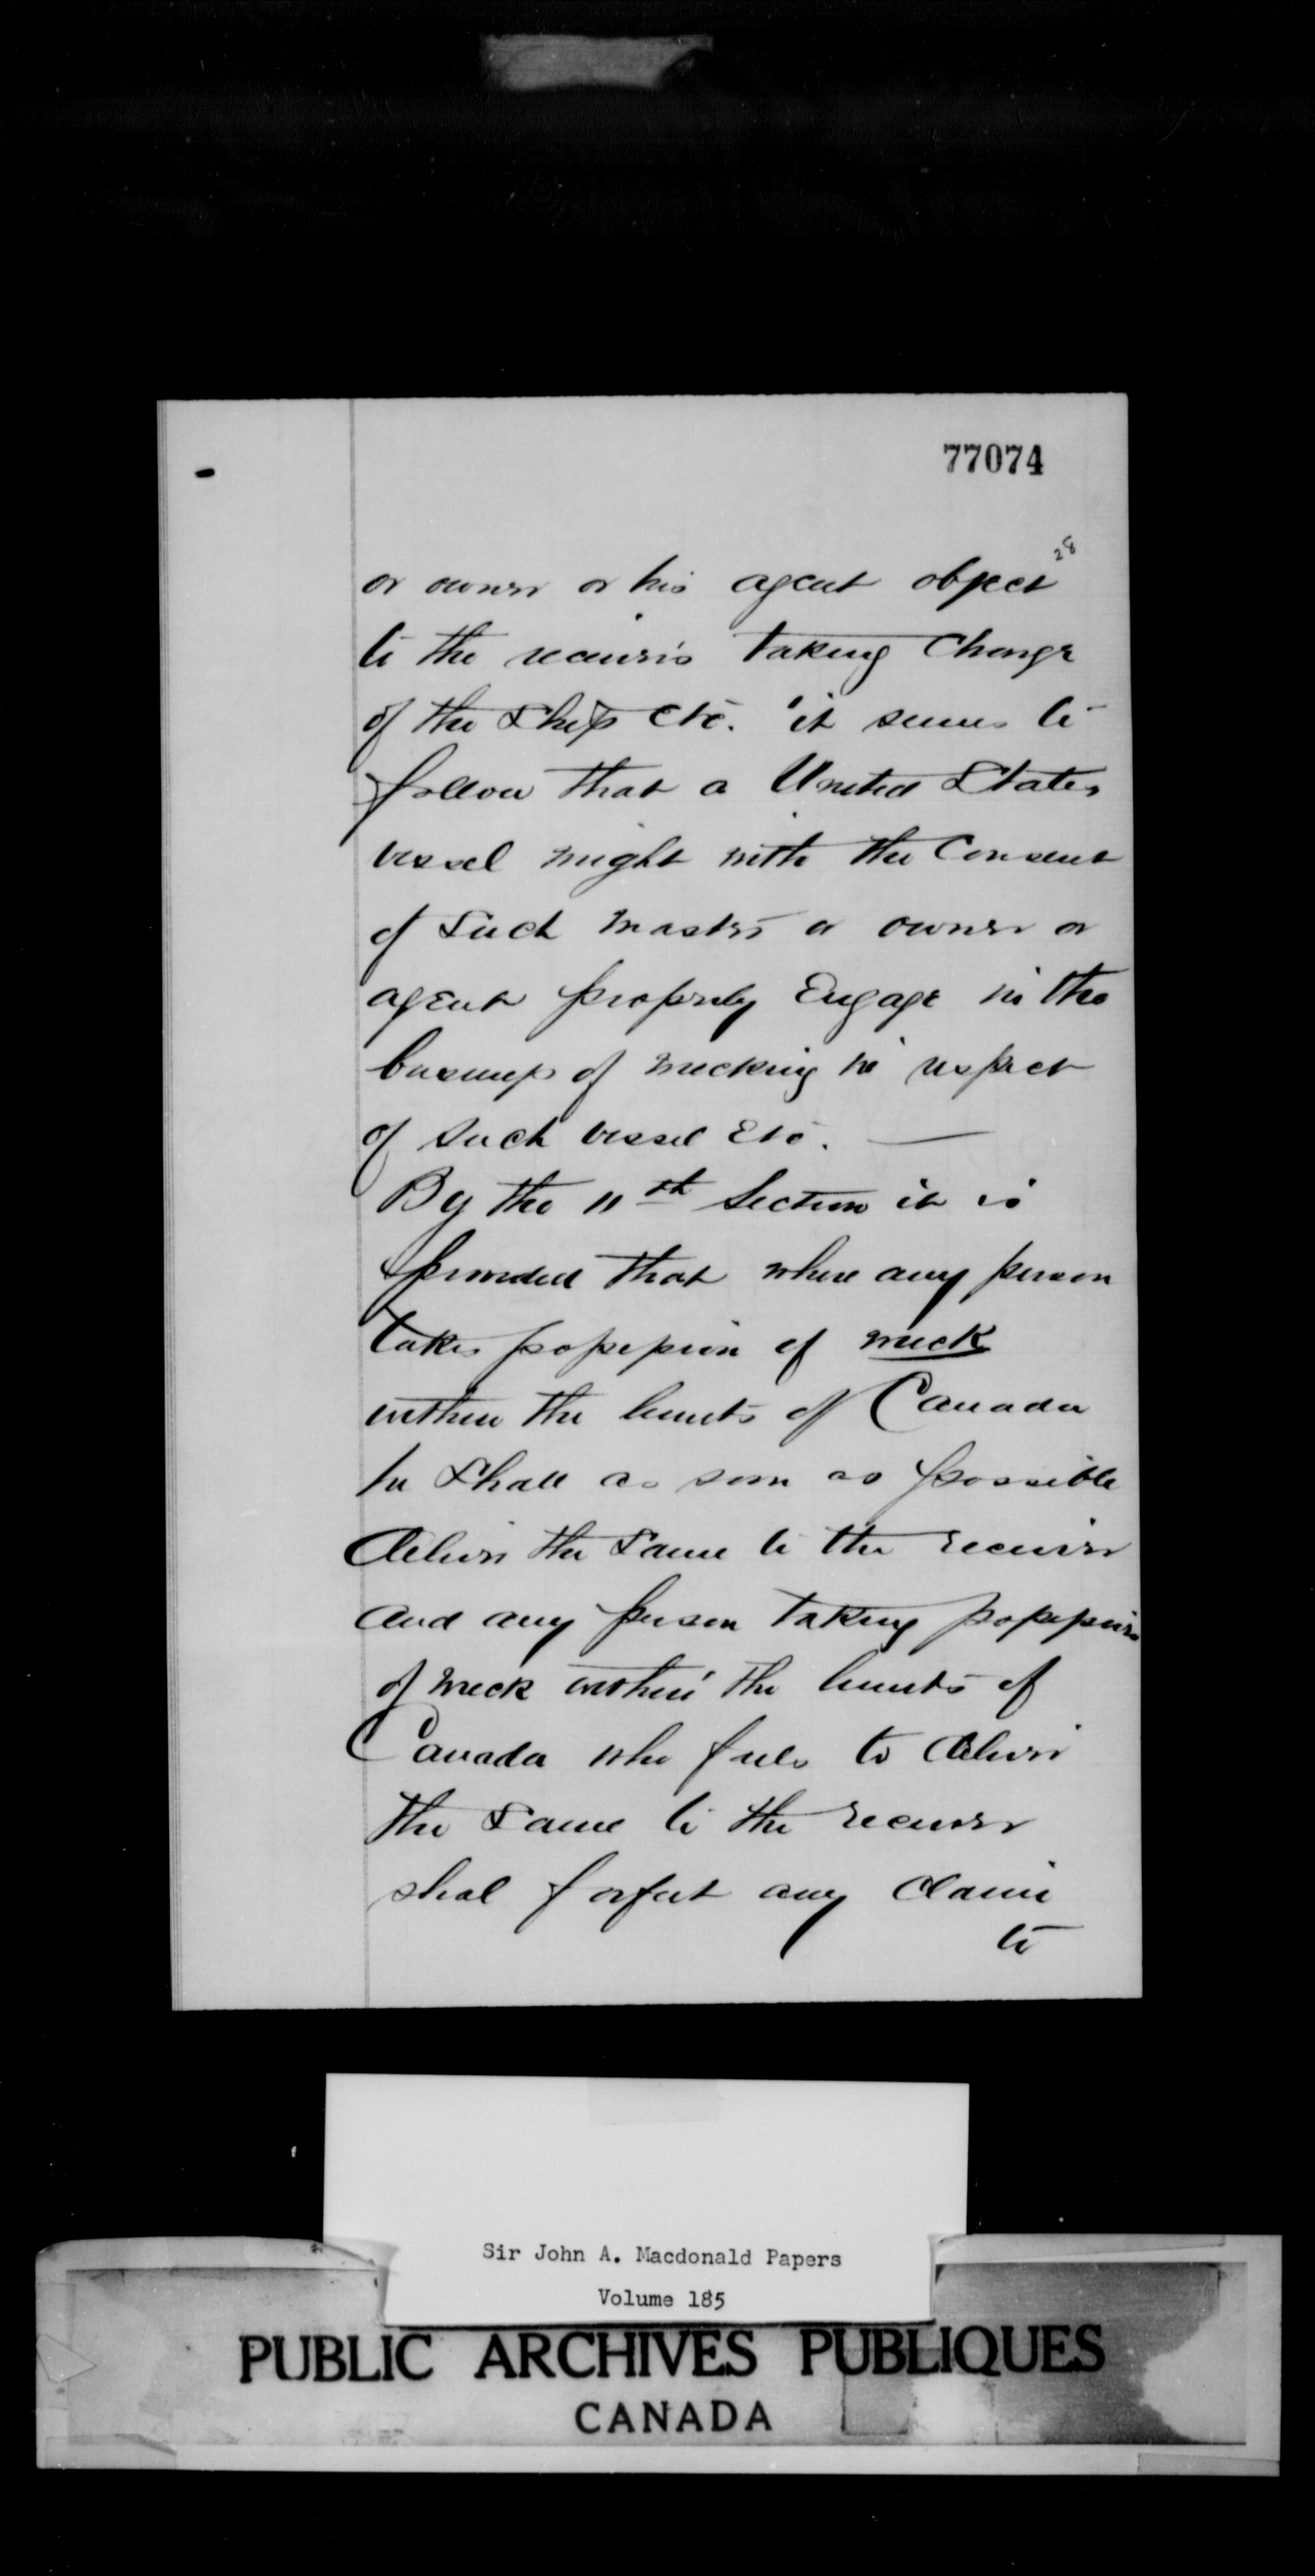 77074
28
or owner or his agent object
to the receiver's taking Charge
of the Ship etc. it seems to
follow that a United States
vessel might with the Consent
of Such Master or owner or
agent properly Engage in the
business of wrecking in respect
of such vessel Etc. —
By the 11th Section it is
provided that where any person
takes possession of wreck
within the limits of Canada
he Shall as soon as possible
deliver the Same to the receiver
and any person taking possession
of wreck within the limits of
Canada who fails to deliver
the Same to the receiver
shal forfeit any Claim
to
Sir John A. Macdonald Papers
Volume 185
PUBLIC ARCHIVES PUBLIQUES
CANADA